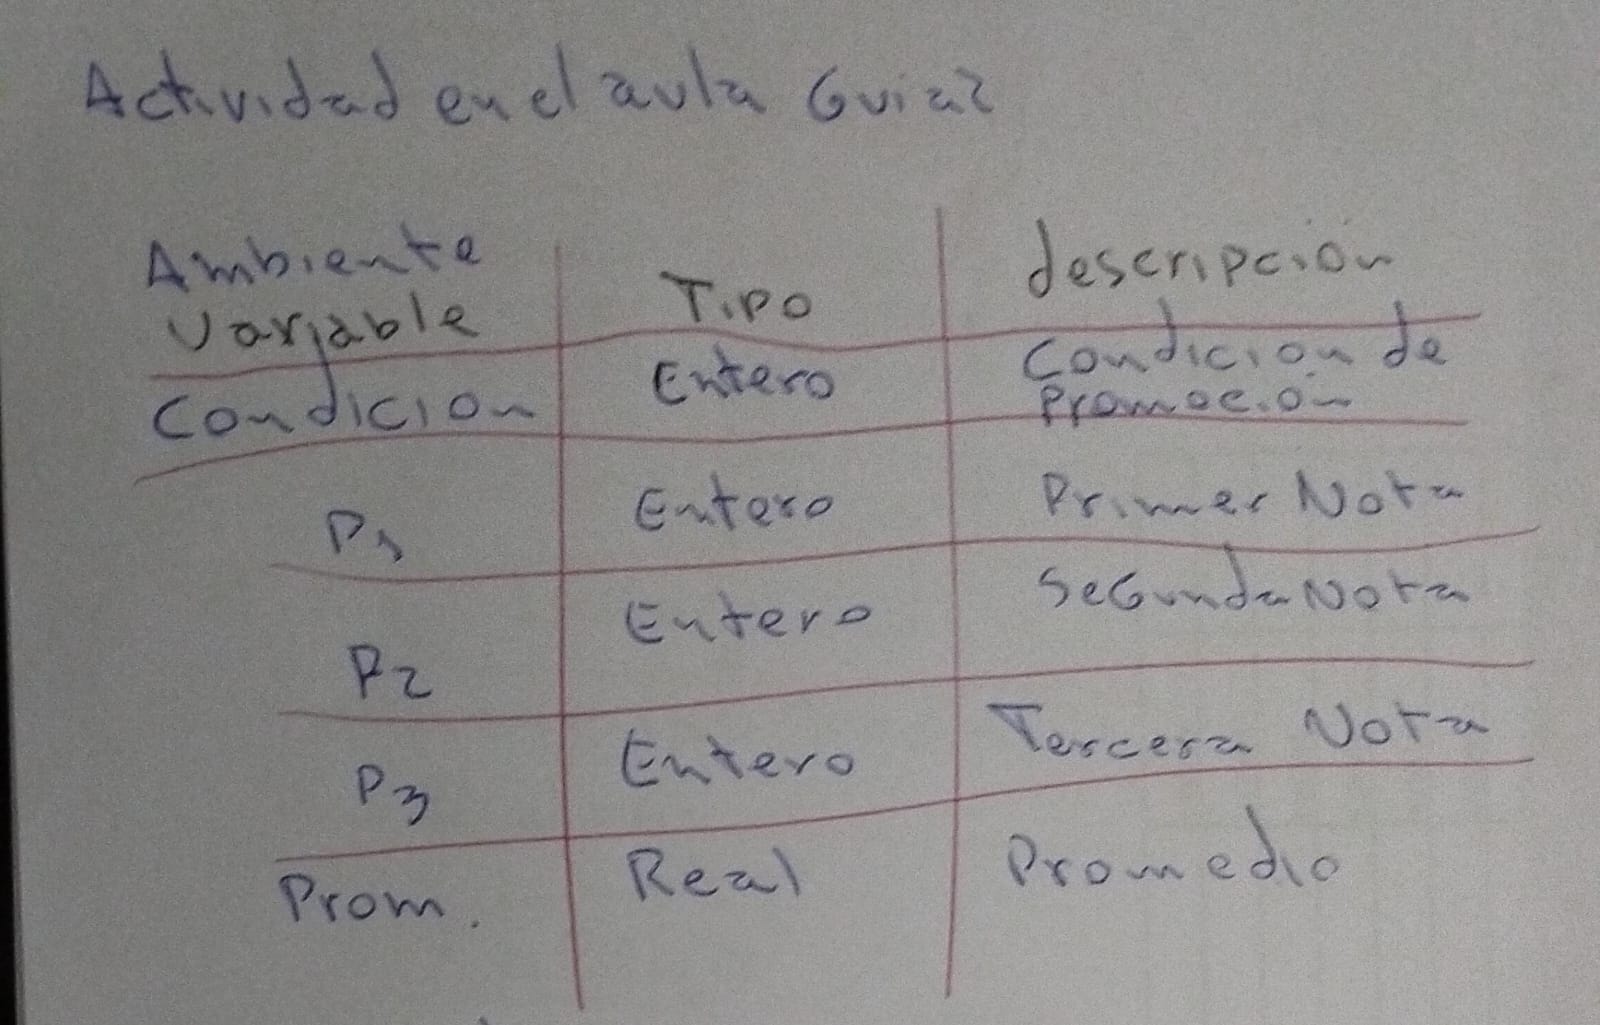 Actividad en el aula Guia2
Ambiente
Variable Tipo descripción
Condicion Entero Condicion de
Promoción
P1 Entero Primer Nota
P2 Entero Segunda Nota
P3 Entero Tercera Nota
Prom. Real Promedio